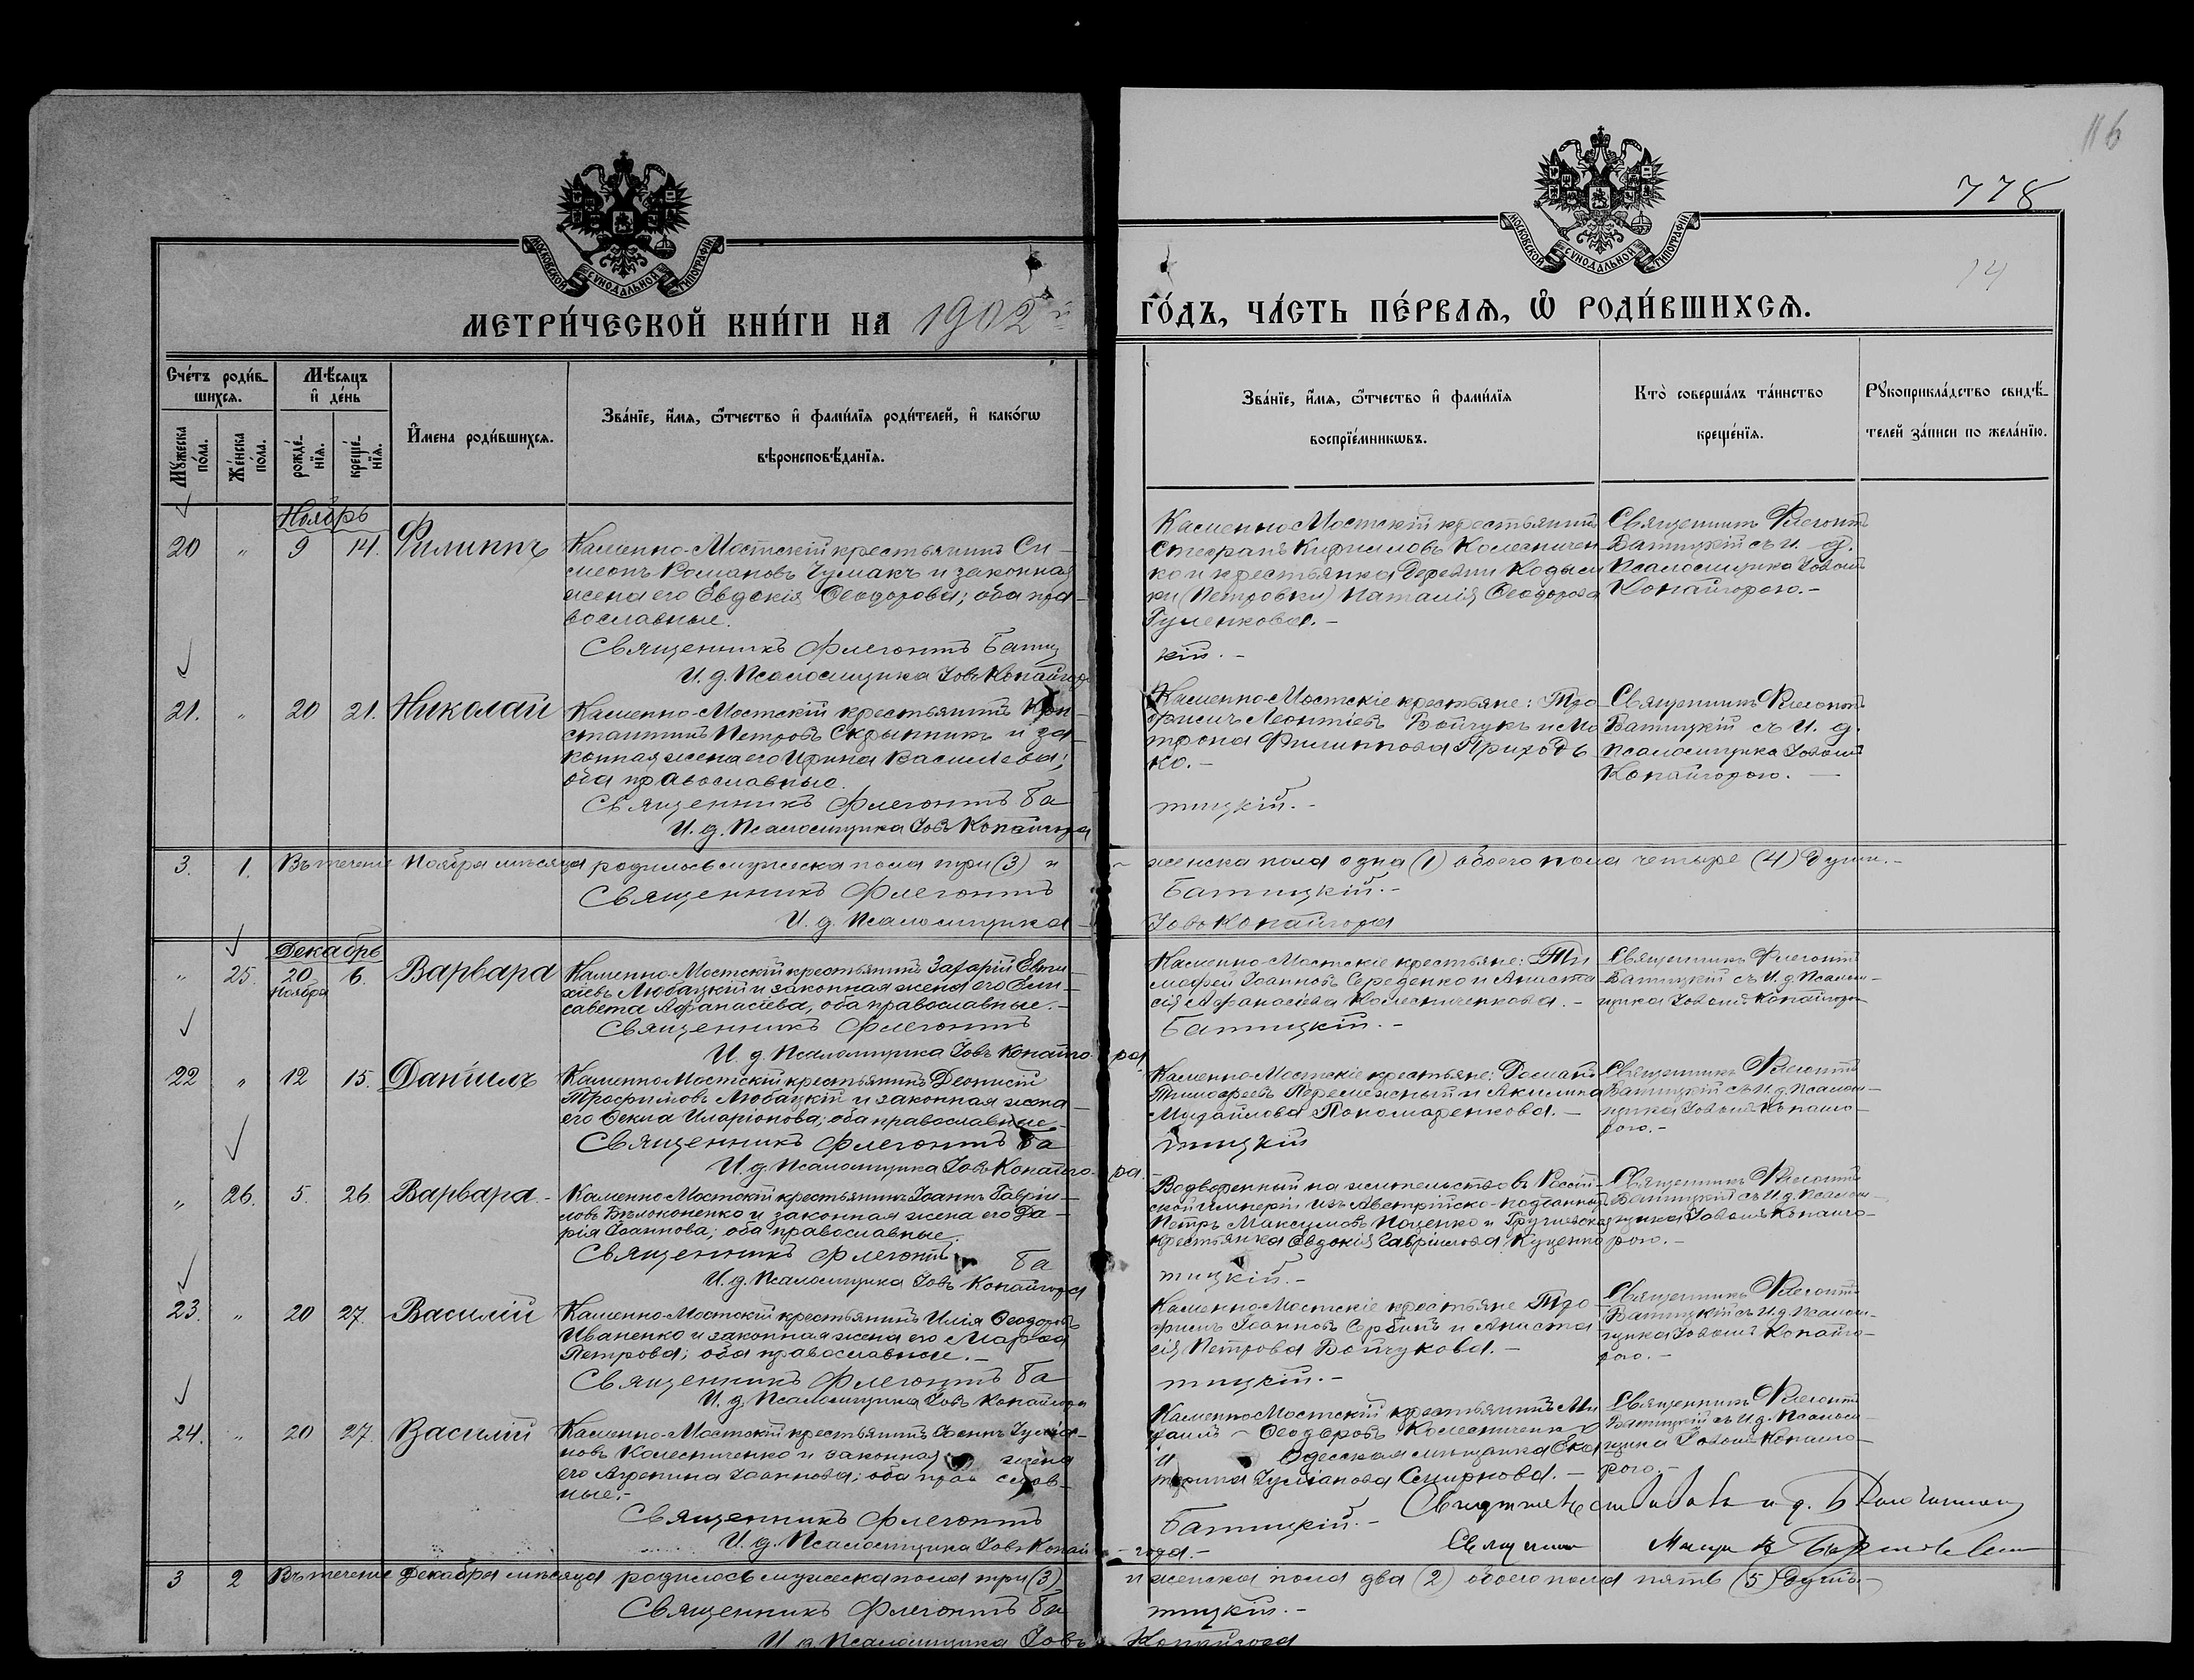 116
778
14
МОСКОВСКОЙ СѴНОДАЛЬНОЙ ТИПОГРАФІИ
МОСКОВСКОЙ СѴНОДАЛЬНОЙ ТИПОГРАФІИ
МЕТРИ́ЧЕСКОЙ КНИ́ГИ НА 1902 й
ГО́ДЪ, ЧА́СТЬ ПЕ́РВАѦ, Ѿ РОДИ́ВШИХСѦ.
Сче́тъ роди́в-
шихсѧ.
Мꙋ́жеска по́ла.
Же́нска по́ла.
Мѣ́сѧцъ и де́нь
рожде́-нїѧ.
креще́-нїѧ.
И҆мена роди́вшихсѧ.
Зва́нїе, и҆́мѧ, ѻ҆́тчество и҆ фами́лїѧ роди́телей, и҆ како́гѡ
вѣроисповѣ́данїѧ.
Зва́нїе, и҆́мѧ, ѻ҆́тчество и҆ фами́лїѧ
воспрїе́мникѡвъ.
Кто̀ соверша́лъ та́инство
креще́нїѧ.
Рꙋкоприкла́дство свидѣ́-
телей за́писи по жела́нїю.
Ноябрь
20 " 9 14. Филиппъ
Каменно-Мостскій крестьянинъ Си-
меонъ Романовъ Чумакъ и законная
жена его Евдокія Ѳеодорова; оба пра-
вославные.
Священникъ Флегонтъ Батиц
И. д. Псаломщика Іовъ Копайгора
Каменно-Мостскій крестьянинъ
Стефанъ Кирилловъ Колесничен
ко и крестьянка деревни Кодым
ки (Петровки) Наталія Ѳеодорова
Гуленкова.-
кій.-
Священникъ Флегонтъ
Батицкій съ и. д.
Псаломщика Іовомъ
Копайгорою.-
21. " 20 21. Николай
Каменно-Мостскій крестьянинъ Кон-
стантинъ Петровъ Скрыпникъ и за-
конная жена его Ирина Васильева;
оба православные.
Священникъ Флегонтъ Ба
И. д. Псаломщика Іовъ Копайгора
Каменно-Мостскіе крестьяне: Тро
фимъ Леонтіевъ Бойчукъ и Ма
трона Филиппова Приходь
ко.-
тицкій.-
Священникъ Флегонтъ
Батицкій съ И. д.
псаломщика Іовомъ
Копайгорою. -
3. 1. Въ теченіе Ноября мѣсяца родилось мужеска пола три (3) и
женска пола одна (1) обоего пола четыре (4) души.-
Священникъ Флегонтъ
Батицкій.-
И. д. Псаломщика
Іовъ Копайгора
Декабрь
" 25. 20 Ноября 6. Варвара
Каменно-Мостскій крестьянинъ Захарій Евти-
хіевъ Любацкій и законная жена его Ели-
савета Афанасіева, оба православные.-
Священникъ Флегонтъ
И. д. Псаломщика Іовъ Копайго
ра
Каменно-Мостскіе крестьяне: Ти
мофей Іоанновъ Середенко и Анаста
сія Афанасіева Колесниченкова.-
Батицкій.-
Священникъ Флегонтъ
Батицкій съ И. д. Псалом-
щика Іовомъ Копайгорою
22 " 12 15. Даніилъ
Каменно-Мостскій крестьянинъ Деонисій
Трофимовъ Любацкій и законная жена
его Ѳекла Иларіонова; оба православные.
Священникъ Флегонтъ Ба
И. д. Псаломщика Іовъ Копайго-
ра.
Каменно-Мостскіе крестьяне: Романъ
Тимофеевъ Перемежный и Акилина
Михайлова Пономаренкова.-
тицкій
Священникъ Флегонтъ
Батицкій съ И. д. Псалом-
щика Іовомъ Копайго-
рою.-
" 26. 5. 26 Варвара.-
Каменно-Мостскій крестьянинъ Іоаннъ Гаврі-
ловъ Бѣлоконенко и законная жена его Да-
рія Іоаннова; оба православные.
Священникъ Флегонтъ Ба
И. д. Псаломщика Іовъ Копайгора
Водворенный на жительство въ Россій-
ской Имперіи изъ Австрійско-подданныхъ
Петръ Максимовъ Поценко и
крестьянка Евдокія Гавріилова Куценко
тицкій.-
Священникъ Флегонтъ
Батицкій съ И. д. Псалом-
щика Іовомъ Копайго-
рою.-
23. " 20 27. Василій
Каменно-Мостскій крестьянинъ Илія Ѳеодоровъ
Иваненко и законная жена его Марѳа
Петрова; оба православные.-
Священникъ Флегонтъ Ба
И. д. Псаломщика Іовъ Копайгора
Каменно-Мостскіе крестьяне Тро-
фимъ Іоанновъ Сербинъ и Анаста
сія Петрова Бойчукова.-
тицкій.-
Священникъ Флегонтъ
Батицкій съ И. д. Псалом-
щика Іовомъ Копайго-
рою.-
24. " 20 27. Василій
Каменно-Мостскій крестьянинъ Іоаннъ Іуліа-
новъ Колесниченко и законная жена
его Агрепина Іоаннова; оба прав слав-
ные.-
Священникъ Флегонтъ
И. д. Псаломщика Іовъ Копай-
гора.-
Каменно-Мостскій крестьянинъ Ми
хаилъ - Ѳеодоровъ Колесниченко
и Одесская мѣщанка Ека
терина Іуліанова Смирнова.-
Батицкій.-
Священникъ Флегонтъ
Батицкій съ И. д. Псалом-
щика Іовомъ Копайго-
рою.-
Свидѣтельствовалъ и. д.
Священникъ
3 2 Въ теченіе Декабря мѣсяца родилось мужеска пола три (3)
и женска пола два (2) обоего пола пять (5) душъ.-
Священникъ Флегонтъ Ба
тицкій.-
И. д. Псаломщика Іовъ
Копайгора